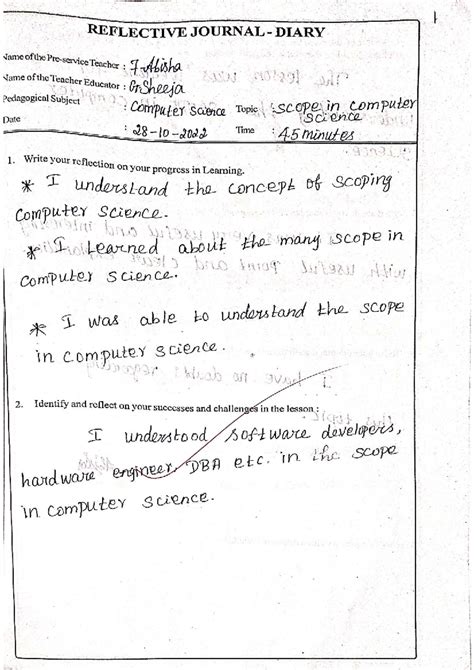 REFLECTIVE JOURNAL - DIARY
Name of the Pre-service Teacher : F. Abisha
Name of the Teacher Educator : G. Sheeja
Pedagogical Subject : Computer Science Topic : scope in computer science
Date : 28-10-2022 Time : 45 minutes
1. Write your reflection on your progress in Learning.
* I understand the concept of scoping
computer science.
* I learned about the many scope in
computer science.
* I was able to understand the scope
in computer science.
2. Identify and reflect on your successes and challenges in the lesson :
I understood software developers,
hardware engineer, DBA etc. in the scope
in computer science.